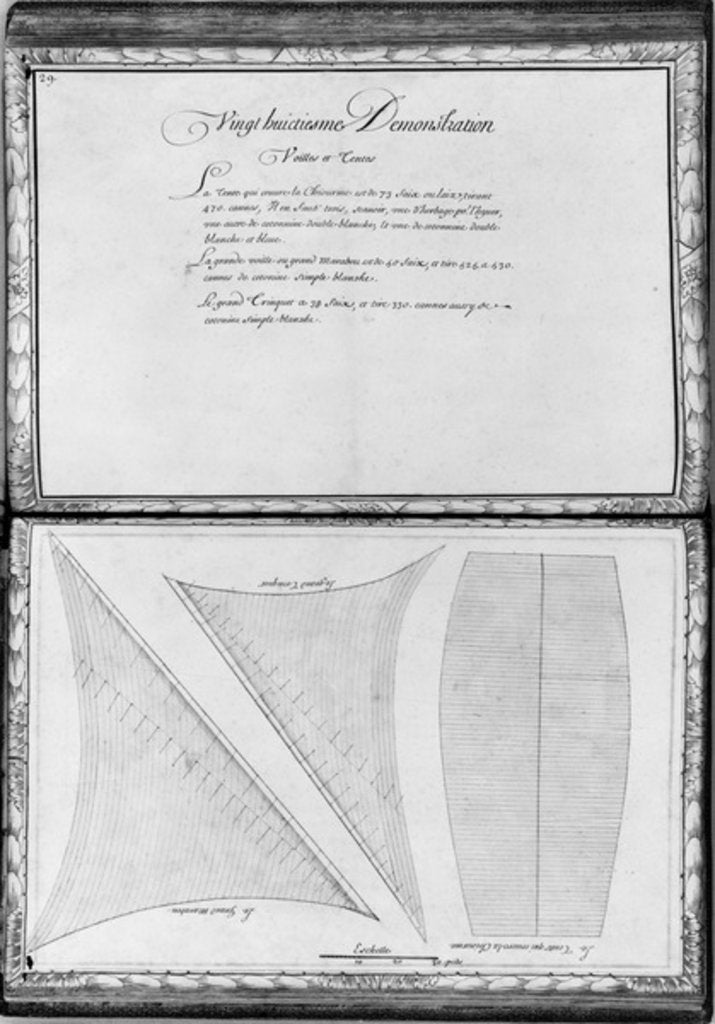 29.
Vingt huictiesme Demonstration
Voilles et Tentes
La Tente qui couvre la Chiourme est de 73 faix ou laizes tirant
470. cannes, Il en faut trois, scavoir, une d'herbage pr. l'hyver,
une autre de cotonnine double blanche, et une de cotonnine double
blanche et bleue.
La grande voille ou grand Marabou est de 40 faix, et tire 424 a 430.
cannes de cotonine simple blanche.
Le grand Trinquet a 38 faix, et tire 330. cannes aussy de
cotonine simple blanche.
Le grand Trinquet
Le Grand Marabou
La Tente qui couvre la Chiourme
Eschelle